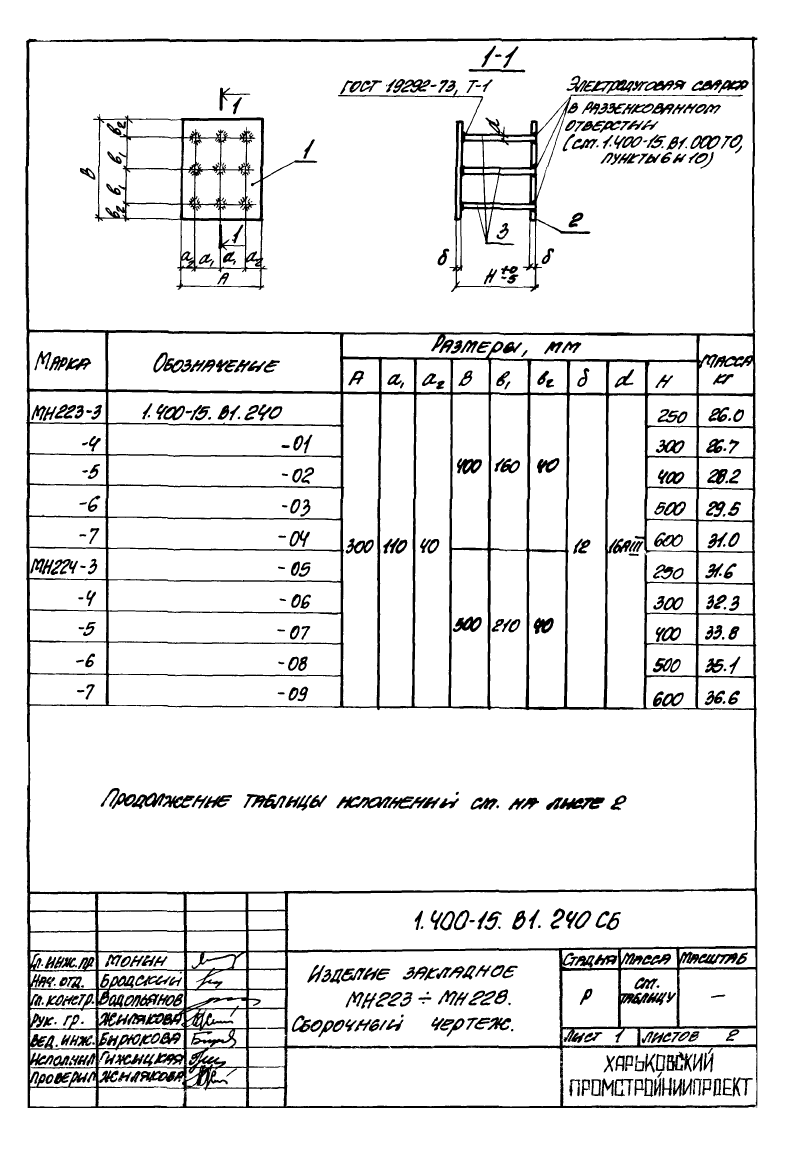 1-1
ГОСТ 19292-73, Т-1
Электродуговая сварка
в раззенкованном
отверстии
(см. 1.400-15.В1.000 ТО,
пункты 6 и 10)
1
1
1
d
3
2
В
в₂
в₁
в₁
в₂
а₂ а₁ а₁ а₂
А
δ
Н +0 -5
δ
Марка Обозначение Размеры, мм Масса кг
А а₁ а₂ В в₁ в₂ δ d Н
МН223-3 1.400-15.В1.240 250 26.0
-4 -01 300 26.7
-5 -02 400 160 40 400 28.2
-6 -03 500 29.5
-7 -04 300 110 40 12 16АIII 600 31.0
МН224-3 -05 250 31.6
-4 -06 300 32.3
-5 -07 500 210 40 400 33.8
-6 -08 500 35.1
-7 -09 600 36.6
Продолжение таблицы исполнений см. на листе 2
1.400-15.В1.240 СБ
Гл. инж. пр Монин
Нач. отд. Бродский
Гл. констр. Водопьянов
Рук. гр. Жилякова
Вед. инж. Бирюкова
Исполнил Гижицкая
Проверил Жилякова
Изделие закладное
МН223÷МН228.
Сборочный чертеж.
Стадия Масса Масштаб
Р см. таблицу —
Лист 1 Листов 2
ХАРЬКОВСКИЙ
ПРОМСТРОЙНИИПРОЕКТ